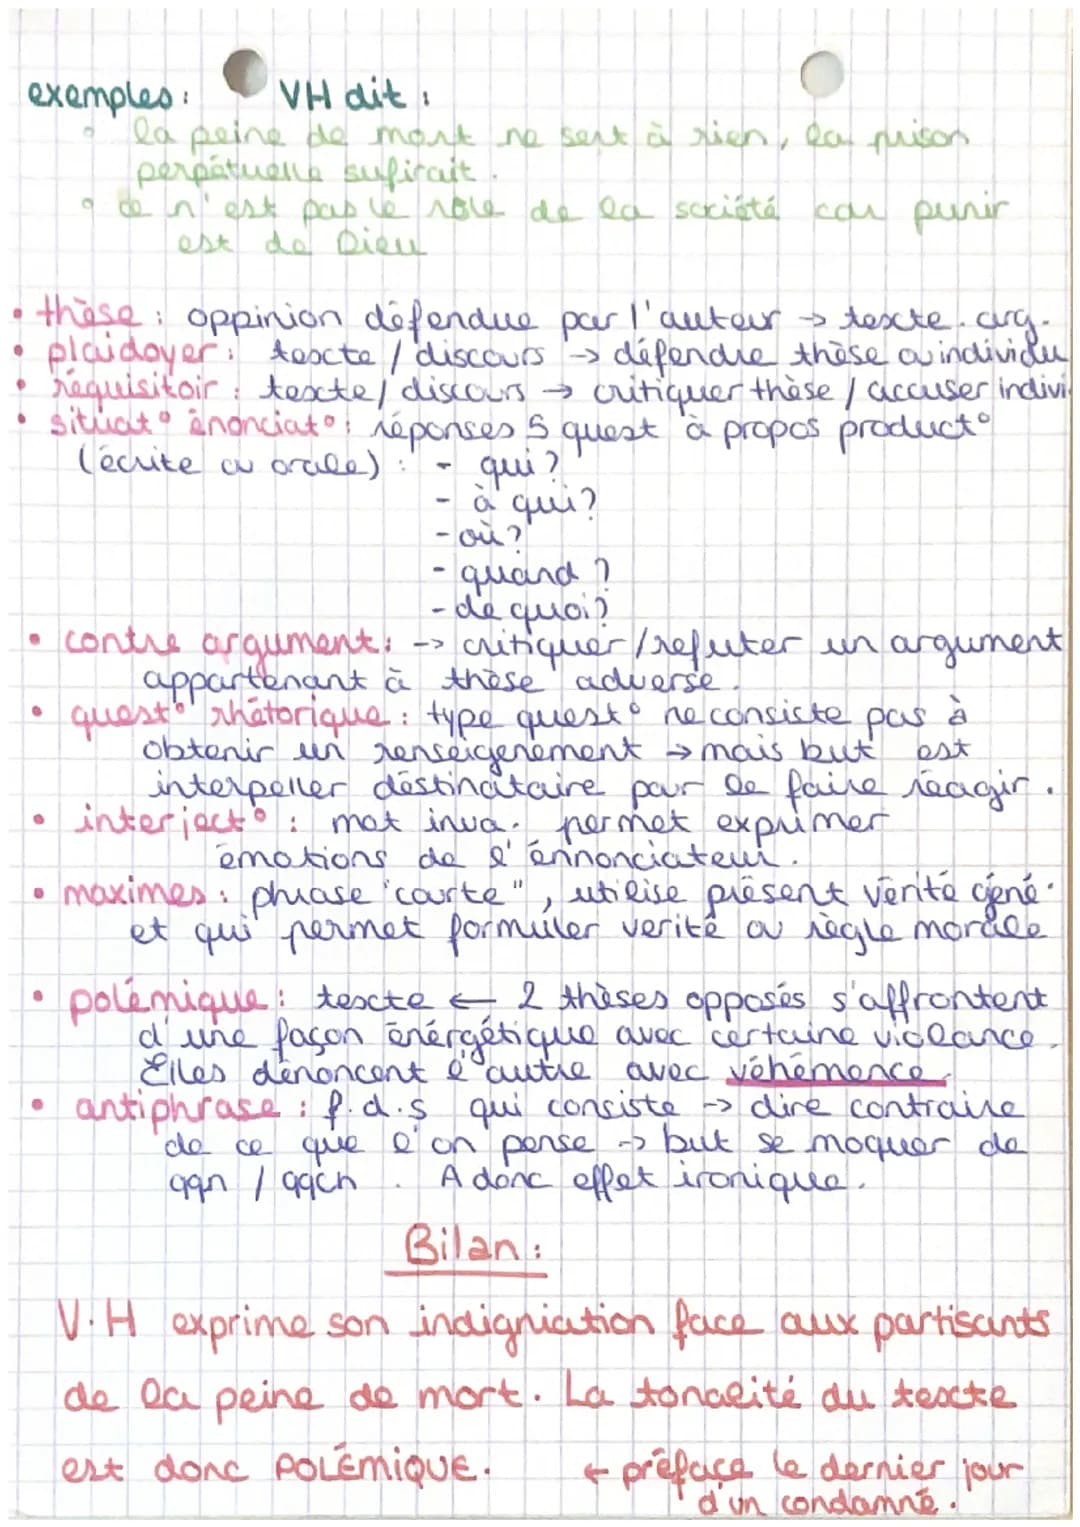 exemples : VH dit :
∘ la peine de mort ne sert à rien, la prison
perpétuelle sufirait.
∘ ce n'est pas le rôle de la société car punir
est de Dieu
• thèse : oppinion défendue par l'auteur → texte arg.
• plaidoyer : texte / discours → défendre thèse ou individu
• réquisitoir : texte / discours → critiquer thèse / accuser indivi.
• situat° énonciat° : réponses 5 quest à propos product°
(écrite ou orale) : - qui ?
- à qui ?
- où ?
- quand ?
- de quoi ?
• contre argument : → critiquer / refuter un argument
appartenant à thèse adverse.
• quest° rhétorique : type quest° ne consiste pas à
obtenir un renseigenement → mais but est
interpeller déstinataire pour le faire réagir.
• interject° : mot inva. permet exprimer
émotions de l'énnonciateur.
• maximes : phrase "courte", utilise présent vérité géné.
et qui permet formuler verité ou règle morale
• polémique : texte ← 2 thèses opposés s'affrontent
d'une façon énérgétique avec certaine violance.
Elles dénoncent l'autre avec véhémence.
• antiphrase : f.d.s qui consiste → dire contraire
de ce que l'on pense → but se moquer de
qqn / qqch . A donc effet ironique.
Bilan :
V.H exprime son indigniation face aux partisants
de la peine de mort. La tonalité du texte
est donc POLÉMIQUE. ← préface le dernier jour
d'un condamné.